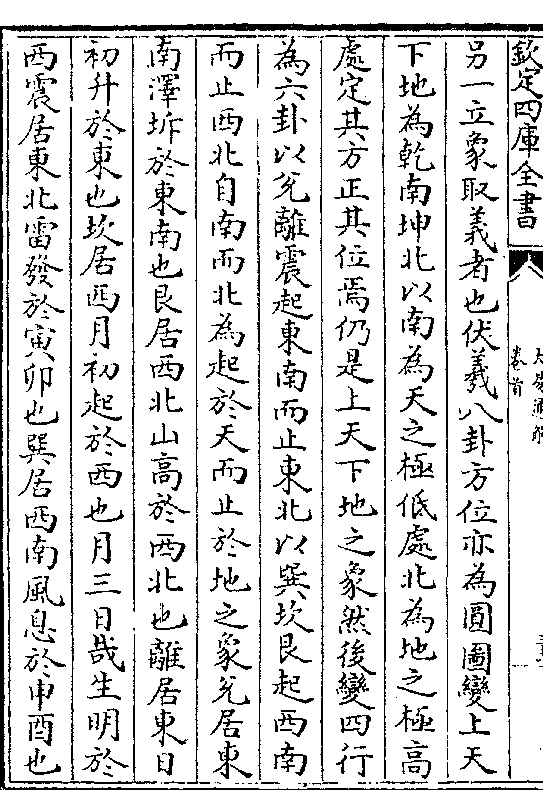 欽定四庫全書
卷首
另一立象取義者也伏羲八卦方位亦為圓圖變上天
下地為乾南坤北以南為天之極低處北為地之極高
處定其方正其位焉仍是上天下地之象然後變四行
為六卦以兌離震起東南而止東北以巽坎艮起西南
而止西北自南而北為起於天而止於地之象兌居東
南澤坼於東南也艮居西北山高於西北也離居東日
初升於東也坎居西月初起於西也月三日哉生明於
西震居東北雷發於寅卯也巽居西南風息於申酉也